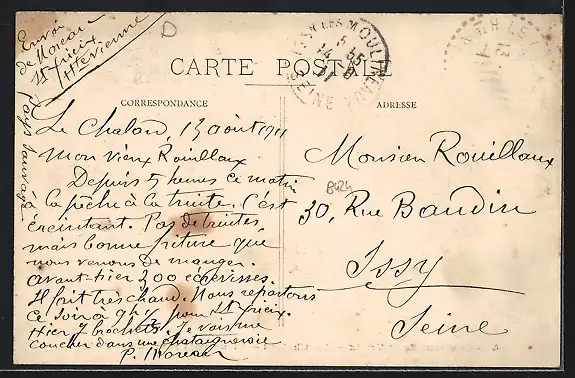 Envoi
de Moreau
St Yrieix
Hte Vienne
D
CARTE POSTALE
CORRESPONDANCE
ADRESSE
ISSY LES MOULINEAUX
SEINE
Pays sauvage
Le Chalard, 13 août 1911
Mon vieux Rouillaux
Depuis 5 heures ce matin
à la pêche à la truite. C'est
éreintant. Pas de truites,
mais bonne friture que
nous venons de manger.
avant-hier 300 écrevisses.
Il fait très chaud. Nous repartons
ce soir à 9h½ pour St Yrieix.
Hier 7 brochets. Je vais me
coucher dans une chataigneraie
P. Moreau
Monsieur Rouillaux
8424
30, Rue Baudin
Issy
Seine